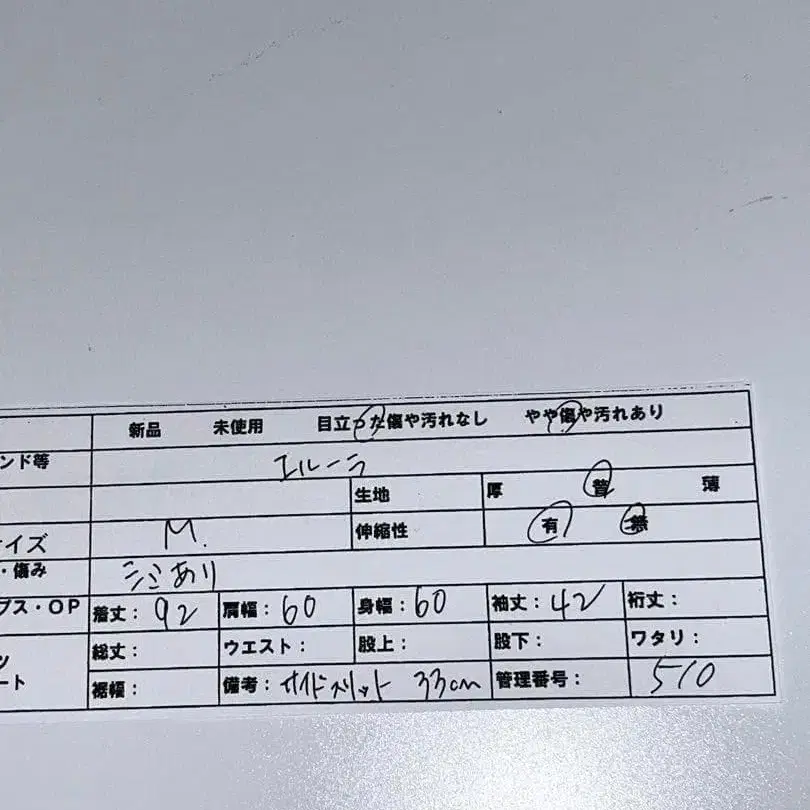 新品 未使用 目立った傷や汚れなし やや傷や汚れあり
ンド等 エルーラ
生地 厚 普 薄
イズ M. 伸縮性 有 無
・傷み シミあり
プス・OP 着丈：92 肩幅：60 身幅：60 袖丈：42 裄丈：
ツ 総丈： ウエスト： 股上： 股下： ワタリ：
ート 裾幅： 備考：サイドスリット 33cm 管理番号： 510